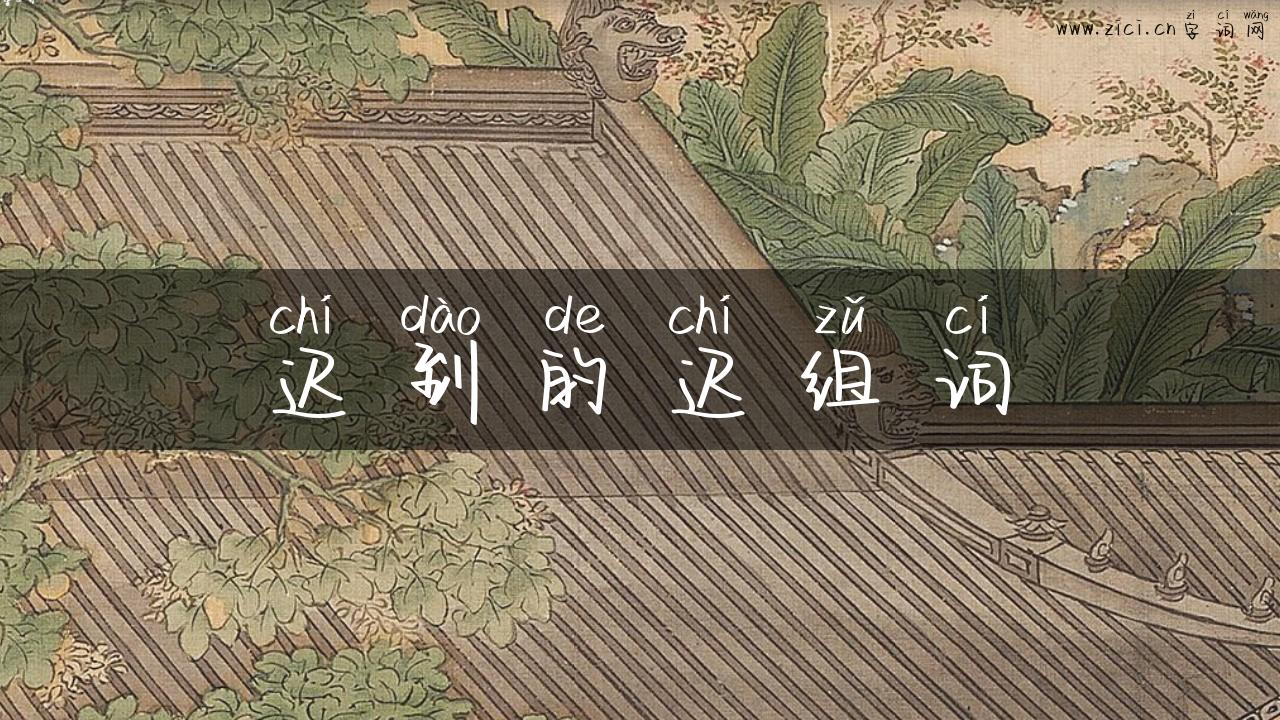 zì cí wǎng
www.zici.cn 字词网
chí dào de chí zǔ cí
迟到的迟组词